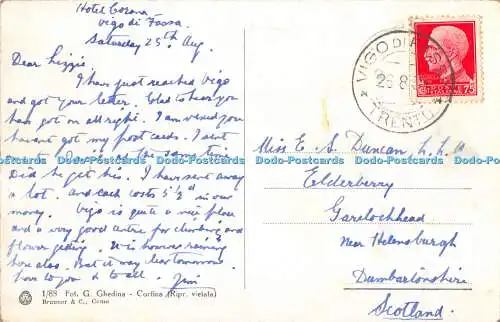 Hotel Corona
Vigo di Fassa
Saturday 25th Aug.
Dear Lizzie
I have just reached Vigo
and got your letter. Glad to hear you
have got on all right. I am vexed you
haven't got my post cards. I sent
at the same time
Did he get his. I have sent away
a lot. and each costs 5½d in our
money. Vigo is quite a nice place
and a very good centre for climbing and
flower finding. It is however raining
here also. But it may clear tomorrow
love to you & to all. Jim
1/88 Fot. G. Ghedina - Cortina (Ripr. vietata)
Brunner & C., Como
VIGO DI FASSA
TRENTO
75
Miss E S. Duncan L.L.A.
Elderberry
Garelochhead
near Helensburgh
Dumbartonshire
Scotland.
Dodo-Postcards Dodo-Postcards Dodo-Postcards